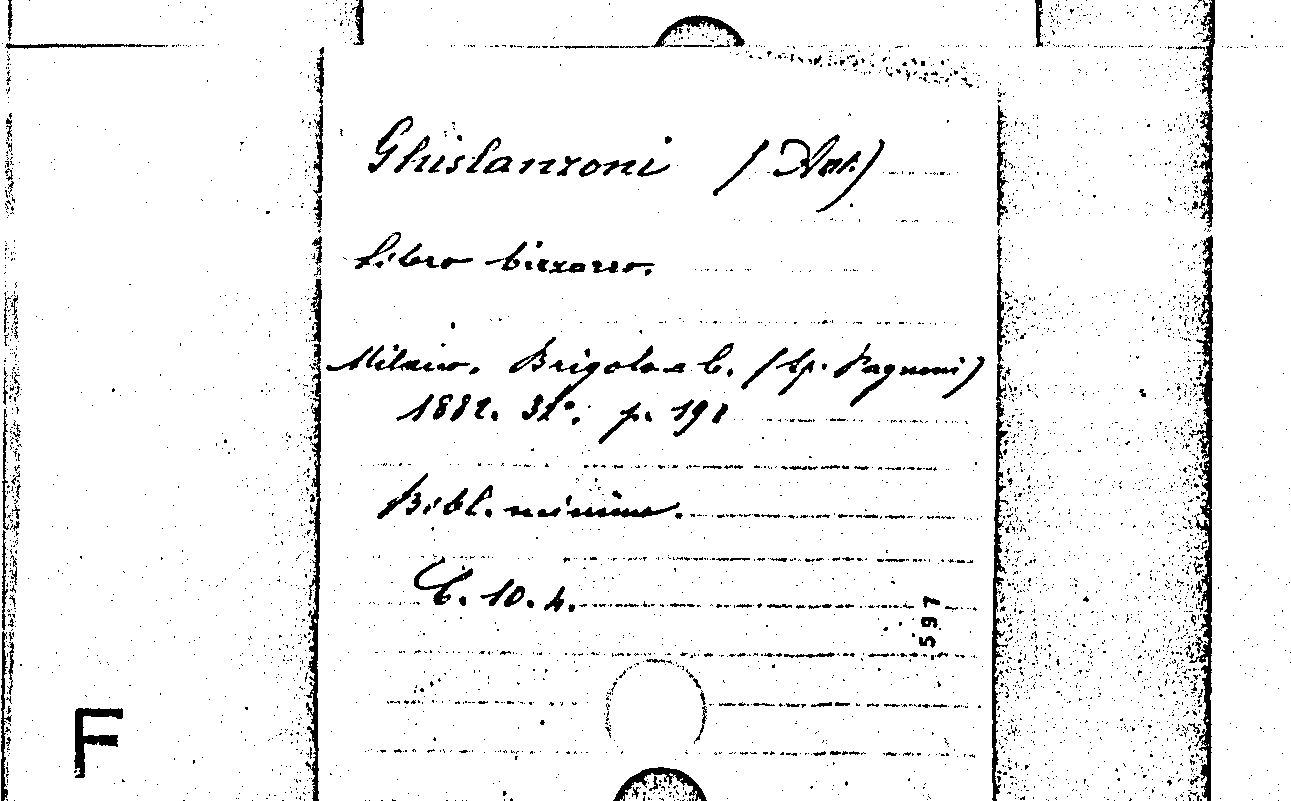 Ghislanzoni (Ant.)
Libro bizzarro.
Milano. Brigola e C. (tip. Pagnoni)
1882. 32°. p. 191
Bibl. minima.
C. 10. 4.
597
F